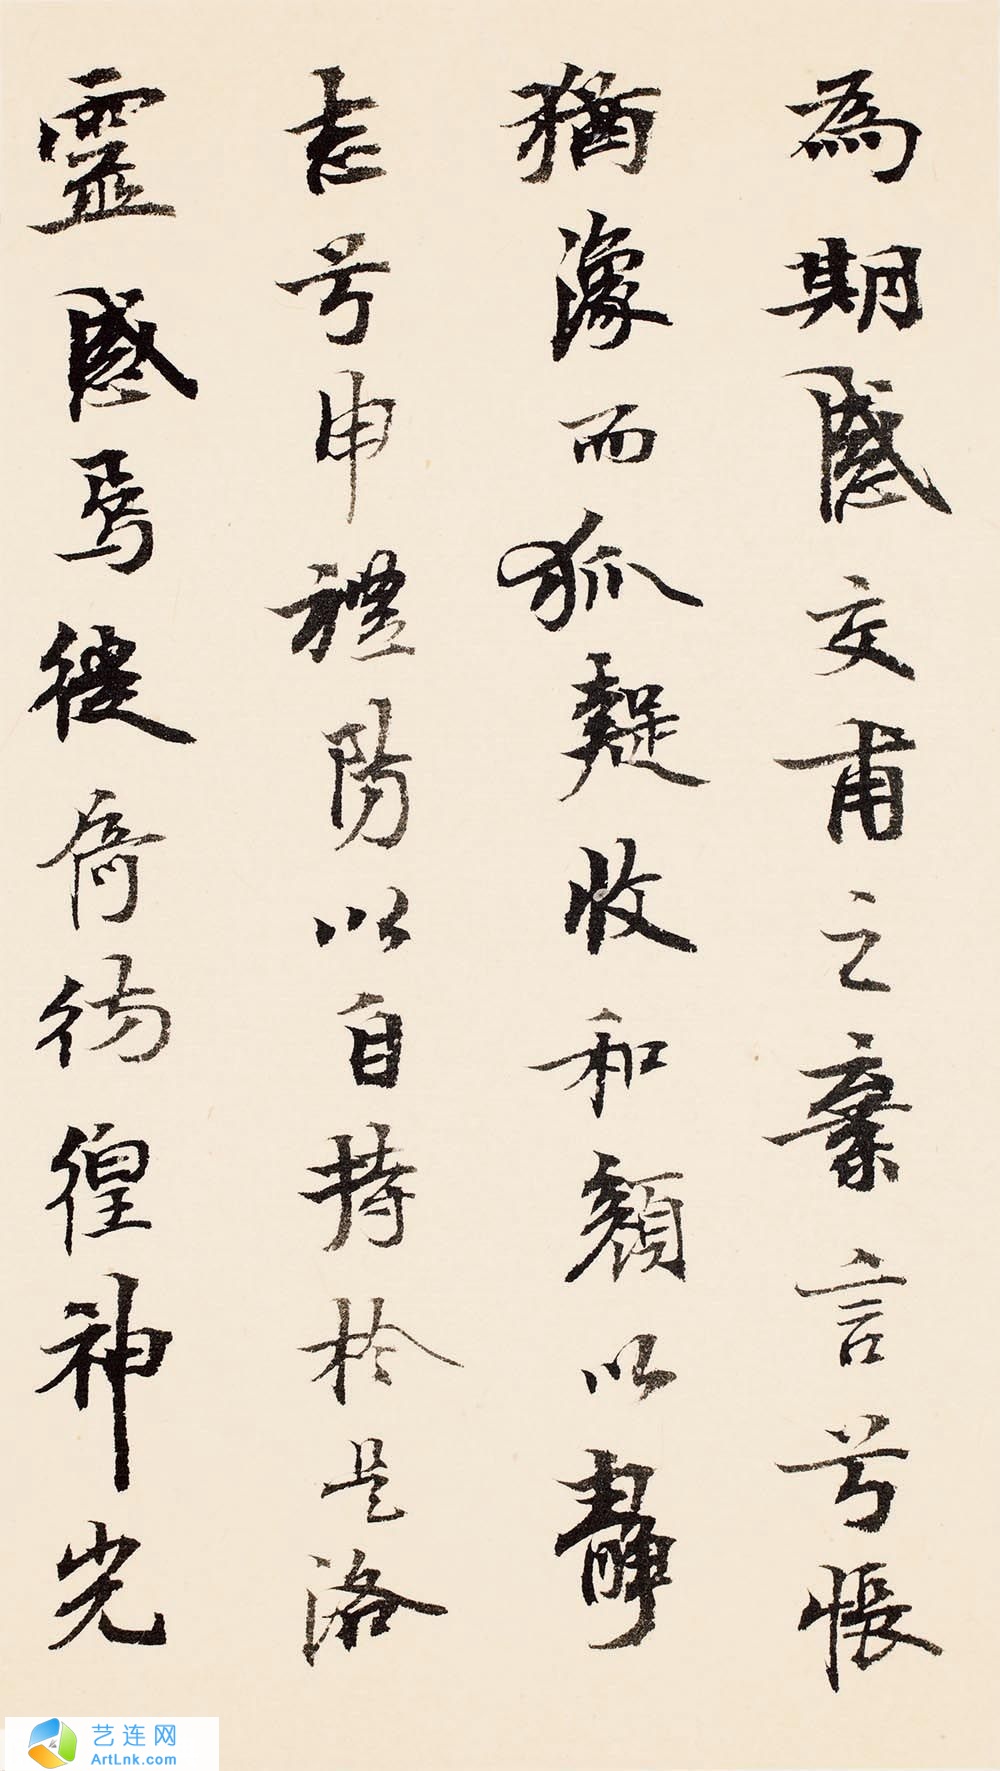 為期感交甫之棄言兮悵
猶豫而狐疑收和顏以靜
志兮申禮防以自持於是洛
靈感焉徙倚彷徨神光
艺连网
ArtLnk.com